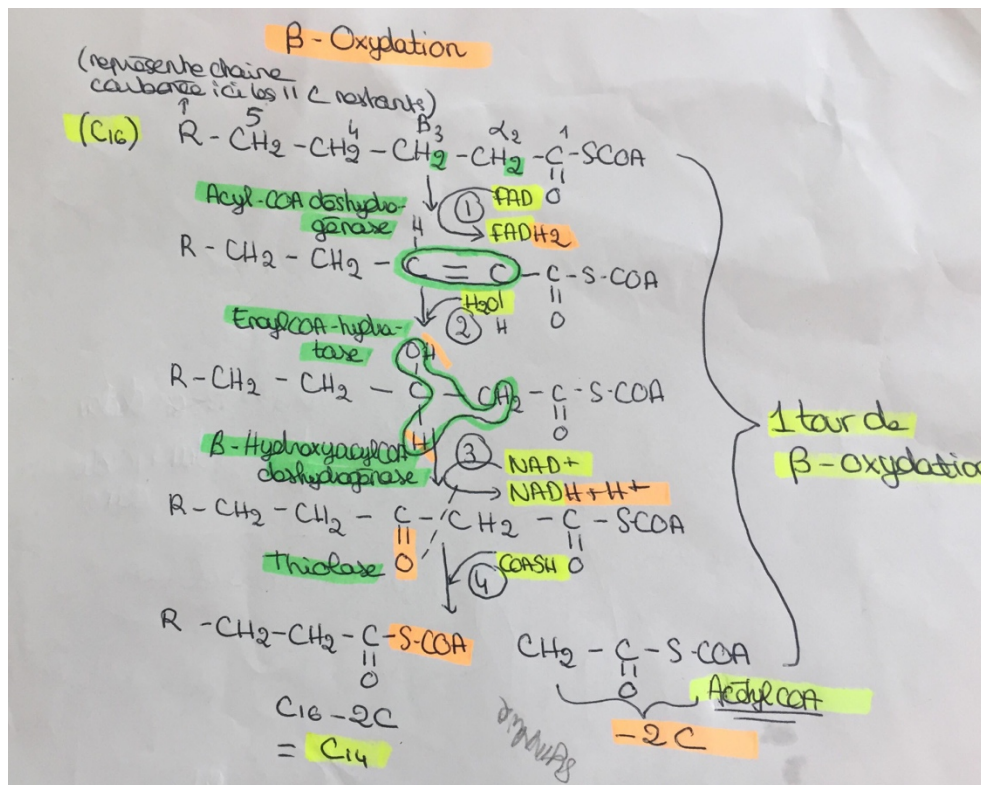 β - Oxydation
(représente chaine
carbonée ici les 11 C restants)
5 4 β3 α2 1
(C16) R - CH2 - CH2 - CH2 - CH2 - C - SCOA
O
Acyl-COA déshydro-
génase
1 FAD
FADH2
H
R - CH2 - CH2 - C = C - C - S - COA
O
H
H2O
2
EnoylCOA-hydra-
tase
OH
R - CH2 - CH2 - C - CH2 - C - S - COA
O
H
β-HydroxyacylCOA
déshydrogénase
3 NAD+
NADH+H+
R - CH2 - CH2 - C - CH2 - C - SCOA
O O
Thiolase
4 COASH
R - CH2 - CH2 - C - S-COA
O
CH2 - C - S - COA
O
AcétylCOA
- 2C
C16 - 2C
= C14
1 tour de
β - oxydation